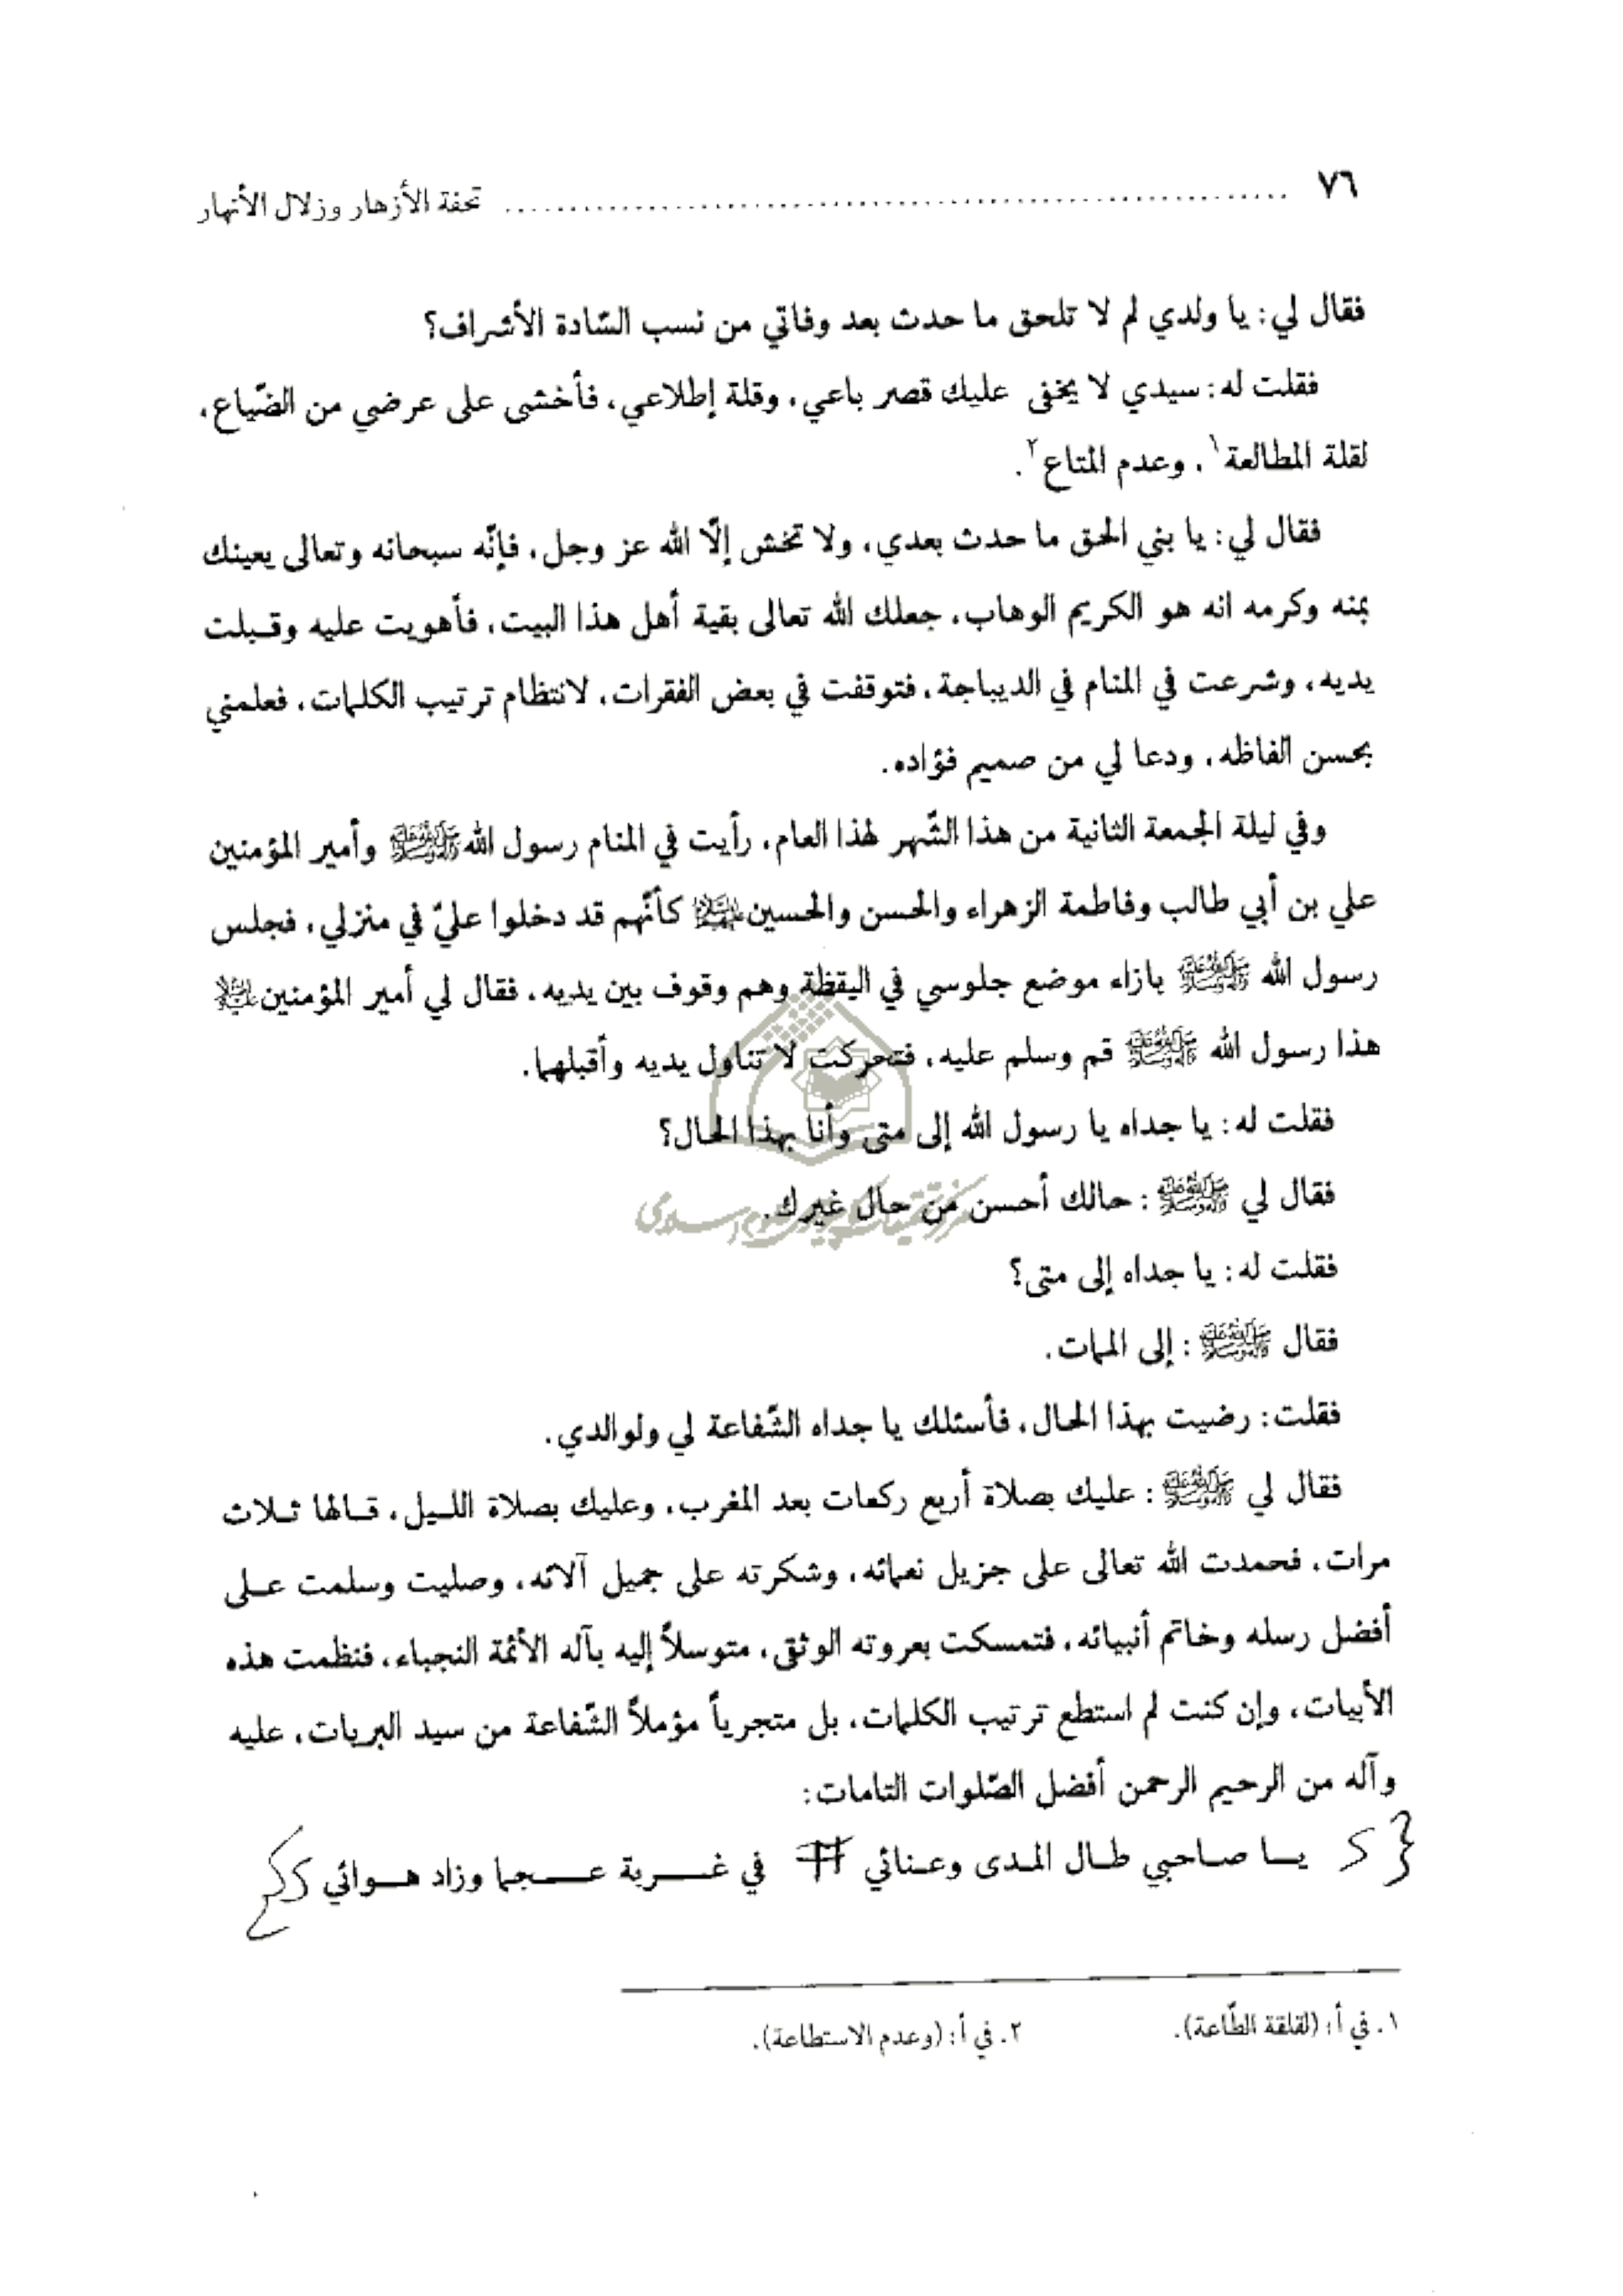 ٧٦ ........................................................ تحفة الأزهار وزلال الأنهار
فقال لي: يا ولدي لم لا تلحق ما حدث بعد وفاتي من نسب السّادة الأشراف؟
فقلت له: سيدي لا يخفى عليك قصر باعي، وقلة إطلاعي، فأخشى على عرضي من الضّياع،
لقلة المطالعة١، وعدم المتاع٢.
فقال لي: يا بني الحق ما حدث بعدي، ولا تخش إلّا الله عز وجل، فإنّه سبحانه وتعالى يعينك
بمنه وكرمه انه هو الكريم الوهاب، جعلك الله تعالى بقية أهل هذا البيت، فأهويت عليه وقبلت
يديه، وشرعت في المنام في الديباجة، فتوقفت في بعض الفقرات، لانتظام ترتيب الكلمات، فعلمني
بحسن الفاظه، ودعا لي من صميم فؤاده.
وفي ليلة الجمعة الثانية من هذا الشّهر لهذا العام، رأيت في المنام رسول الله ﷺ وأمير المؤمنين
علي بن أبي طالب وفاطمة الزهراء والحسن والحسين عليهم السلام كأنّهم قد دخلوا عليّ في منزلي، فجلس
رسول الله ﷺ بازاء موضع جلوسي في اليقظة وهم وقوف بين يديه، فقال لي أمير المؤمنين عليه السلام
هذا رسول الله ﷺ قم وسلم عليه، فتحركت لا تناول يديه وأقبلهما.
فقلت له: يا جداه يا رسول الله إلى متى وأنا بهذا الحال؟
فقال لي ﷺ: حالك أحسن من حال غيرك.
فقلت له: يا جداه إلى متى؟
فقال ﷺ: إلى الممات.
فقلت: رضيت بهذا الحال، فأسئلك يا جداه الشّفاعة لي ولوالدي.
فقال لي ﷺ: عليك بصلاة أربع ركعات بعد المغرب، وعليك بصلاة الليل، قالها ثلاث
مرات، فحمدت الله تعالى على جزيل نعمائه، وشكرته على جميل آلائه، وصليت وسلمت على
أفضل رسله وخاتم أنبيائه، فتمسكت بعروته الوثقى، متوسلاً إليه بآله الأئمة النجباء، فنظمت هذه
الأبيات، وإن كنت لم استطع ترتيب الكلمات، بل متجرياً مؤملاً الشّفاعة من سيد البريات، عليه
وآله من الرحيم الرحمن أفضل الصّلوات التامات:
يا صاحبي طال المدى وعنائي في غربة عجما وزاد هوائي
١. في أ: (لقلقة الطّاعة). ٢. في أ: (وعدم الاستطاعة).